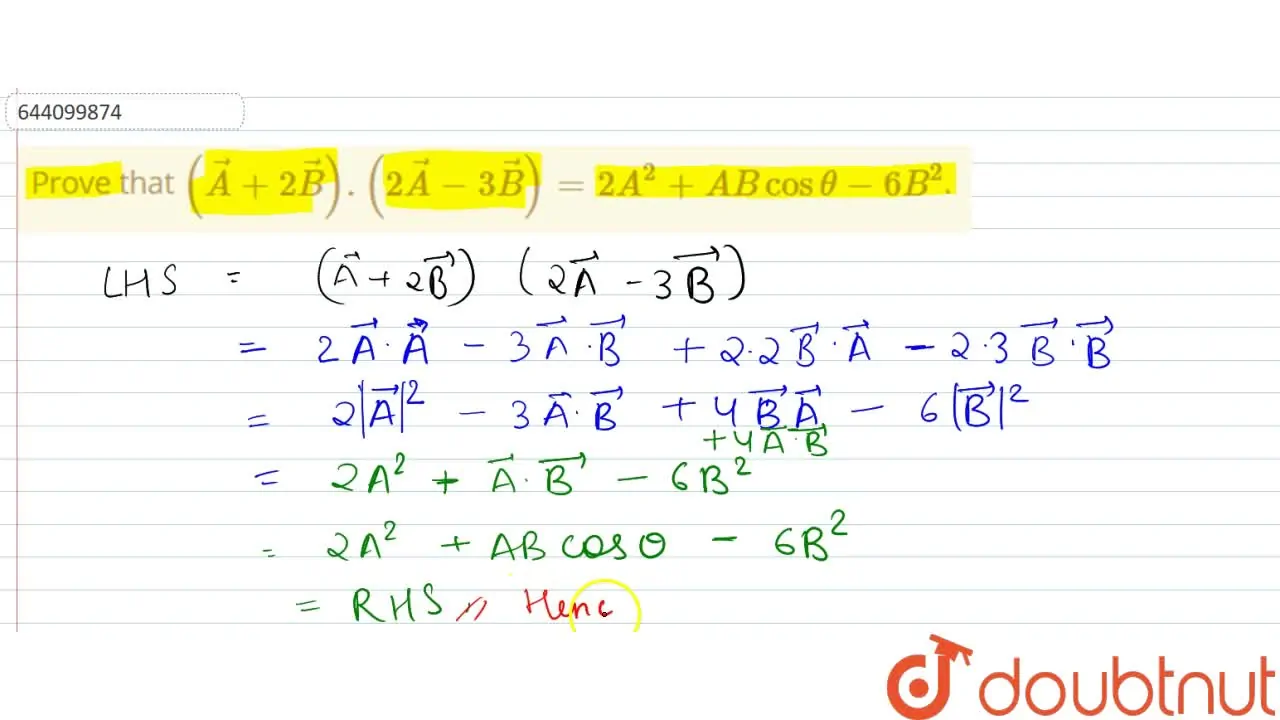 644099874
Prove that $(\vec{A} + 2\vec{B}).(2\vec{A} - 3\vec{B}) = 2A^2 + AB\cos\theta - 6B^2$.
LHS = $(\vec{A} + 2\vec{B})\ (2\vec{A} - 3\vec{B})$
= $2\vec{A}\cdot\vec{A} - 3\vec{A}\cdot\vec{B} + 2\cdot2\vec{B}\cdot\vec{A} - 2\cdot3\vec{B}\cdot\vec{B}$
= $2|\vec{A}|^2 - 3\vec{A}\cdot\vec{B} + 4\vec{B}\vec{A} - 6|\vec{B}|^2$
$+4\vec{A}\cdot\vec{B}$
= $2A^2 + \vec{A}\cdot\vec{B} - 6B^2$
= $2A^2 + AB\cos\theta - 6B^2$
= RHS // Henc
doubtnut